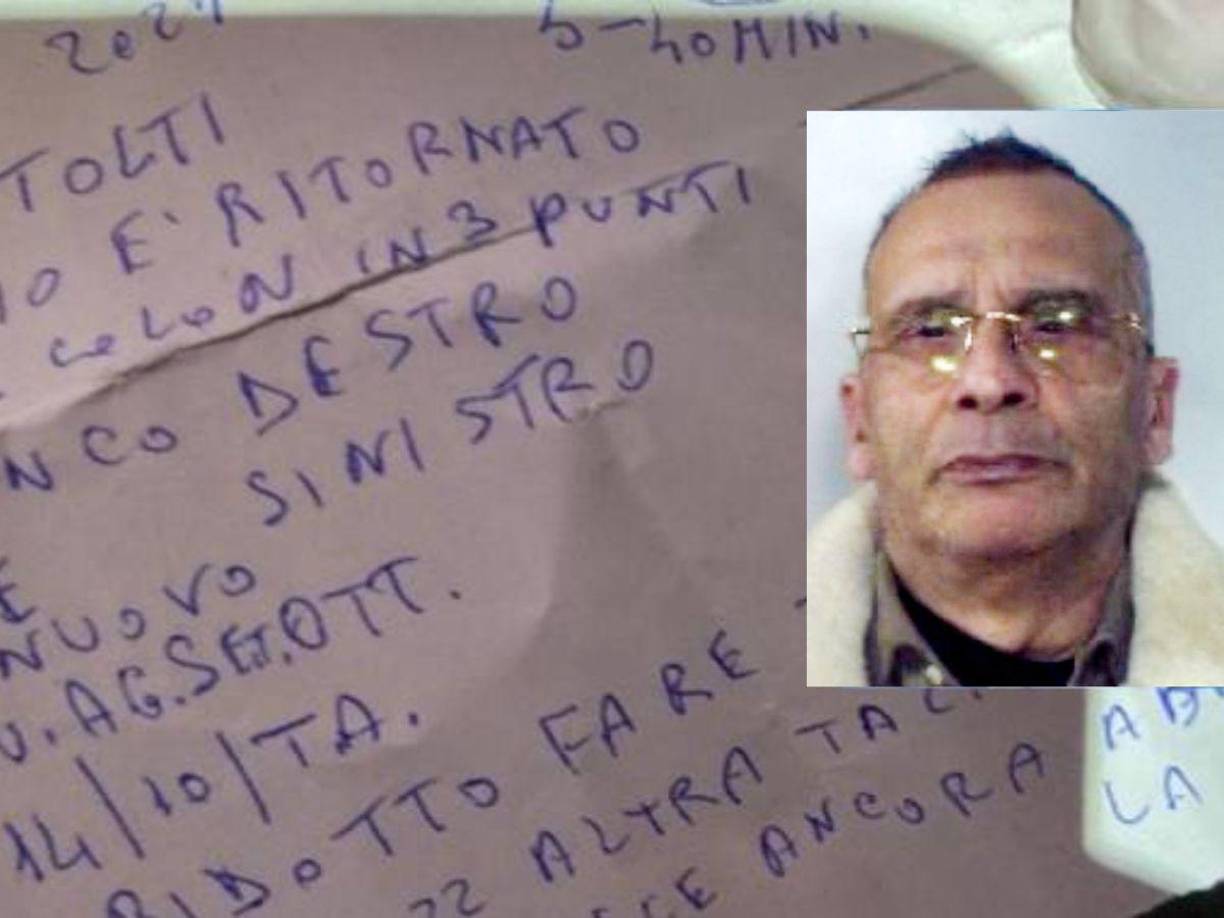 2021
5-40 MIN.
TOLTI
E' RITORNATO
COLON IN 3 PUNTI
DESTRO
SINISTRO
NUOVO
AG. SET. OTT.
14/10/TA.
RIDOTTO FARE
22 ALTRA TAC
ANCORA
LA